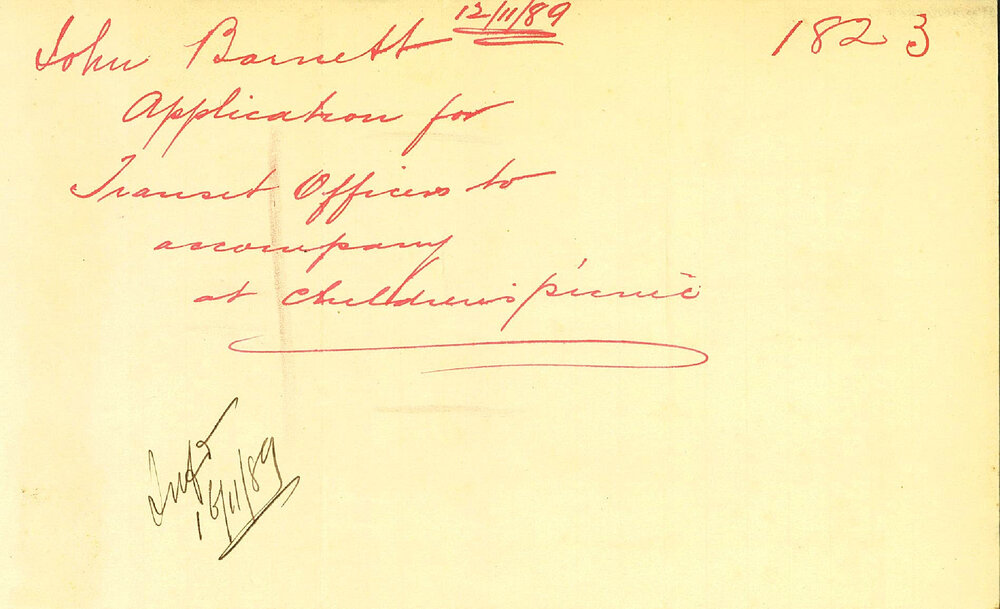 12/11/89
John Barnett 1823
Application for
Transit Officers to
accompany
at children's picnic
16/11/89